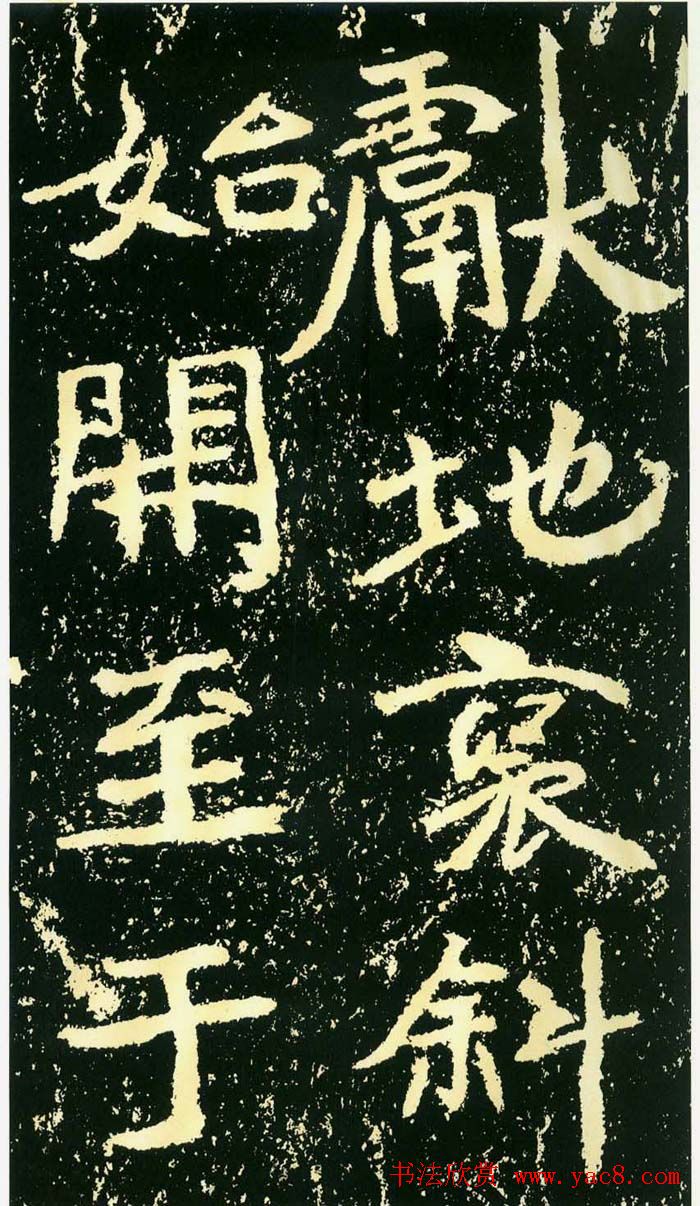 獻地褒斜
始開至于
书法欣赏 www.yac8.com